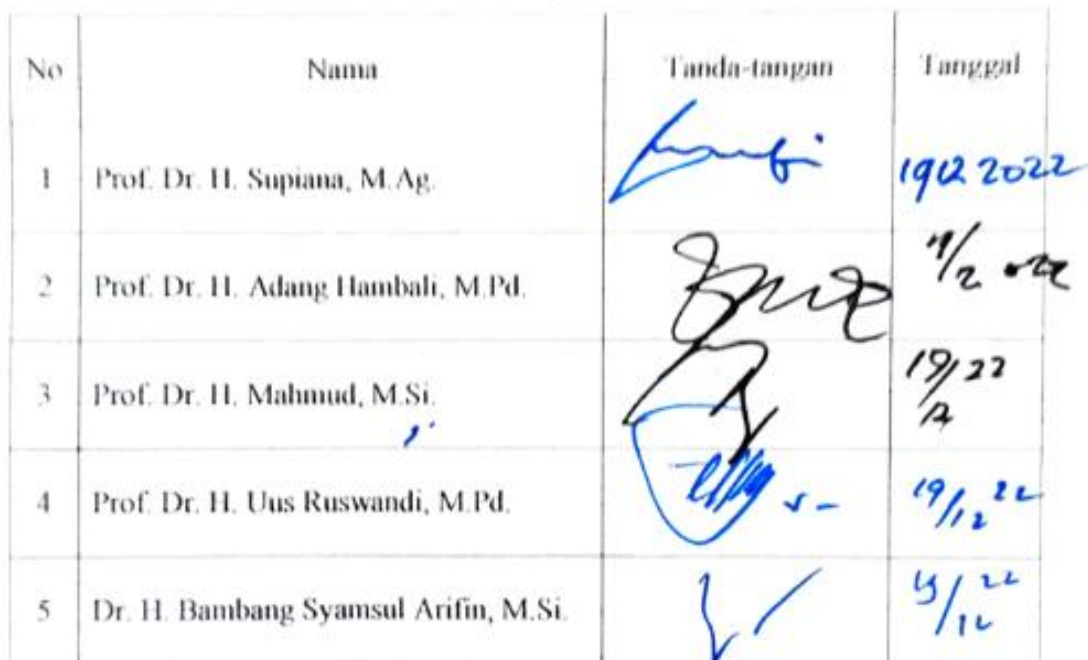 No Nama Tanda-tangan Tanggal
1 Prof. Dr. H. Supiana, M.Ag. 19 12 2022
2 Prof. Dr. H. Adang Hambali, M.Pd.
3 Prof. Dr. H. Mahmud, M.Si. 19/12 22
4 Prof. Dr. H. Uus Ruswandi, M.Pd. 19/12 22
5 Dr. H. Bambang Syamsul Arifin, M.Si. 19/12 22